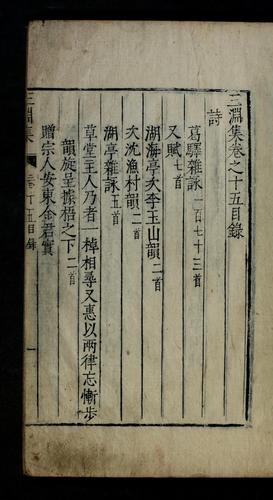 三淵集卷之十五目錄
詩
葛驛雜詠 一百七十三首
又賦 七首
湖海亭次李玉山韻 二首
次沈漁村韻 二首
湖亭雜詠 五首
草堂主人乃者一棹相尋又惠以兩律忘慚步
韻旋呈據梧之下 二首
贈宗人安東金君實
三淵集 卷十五目錄 一